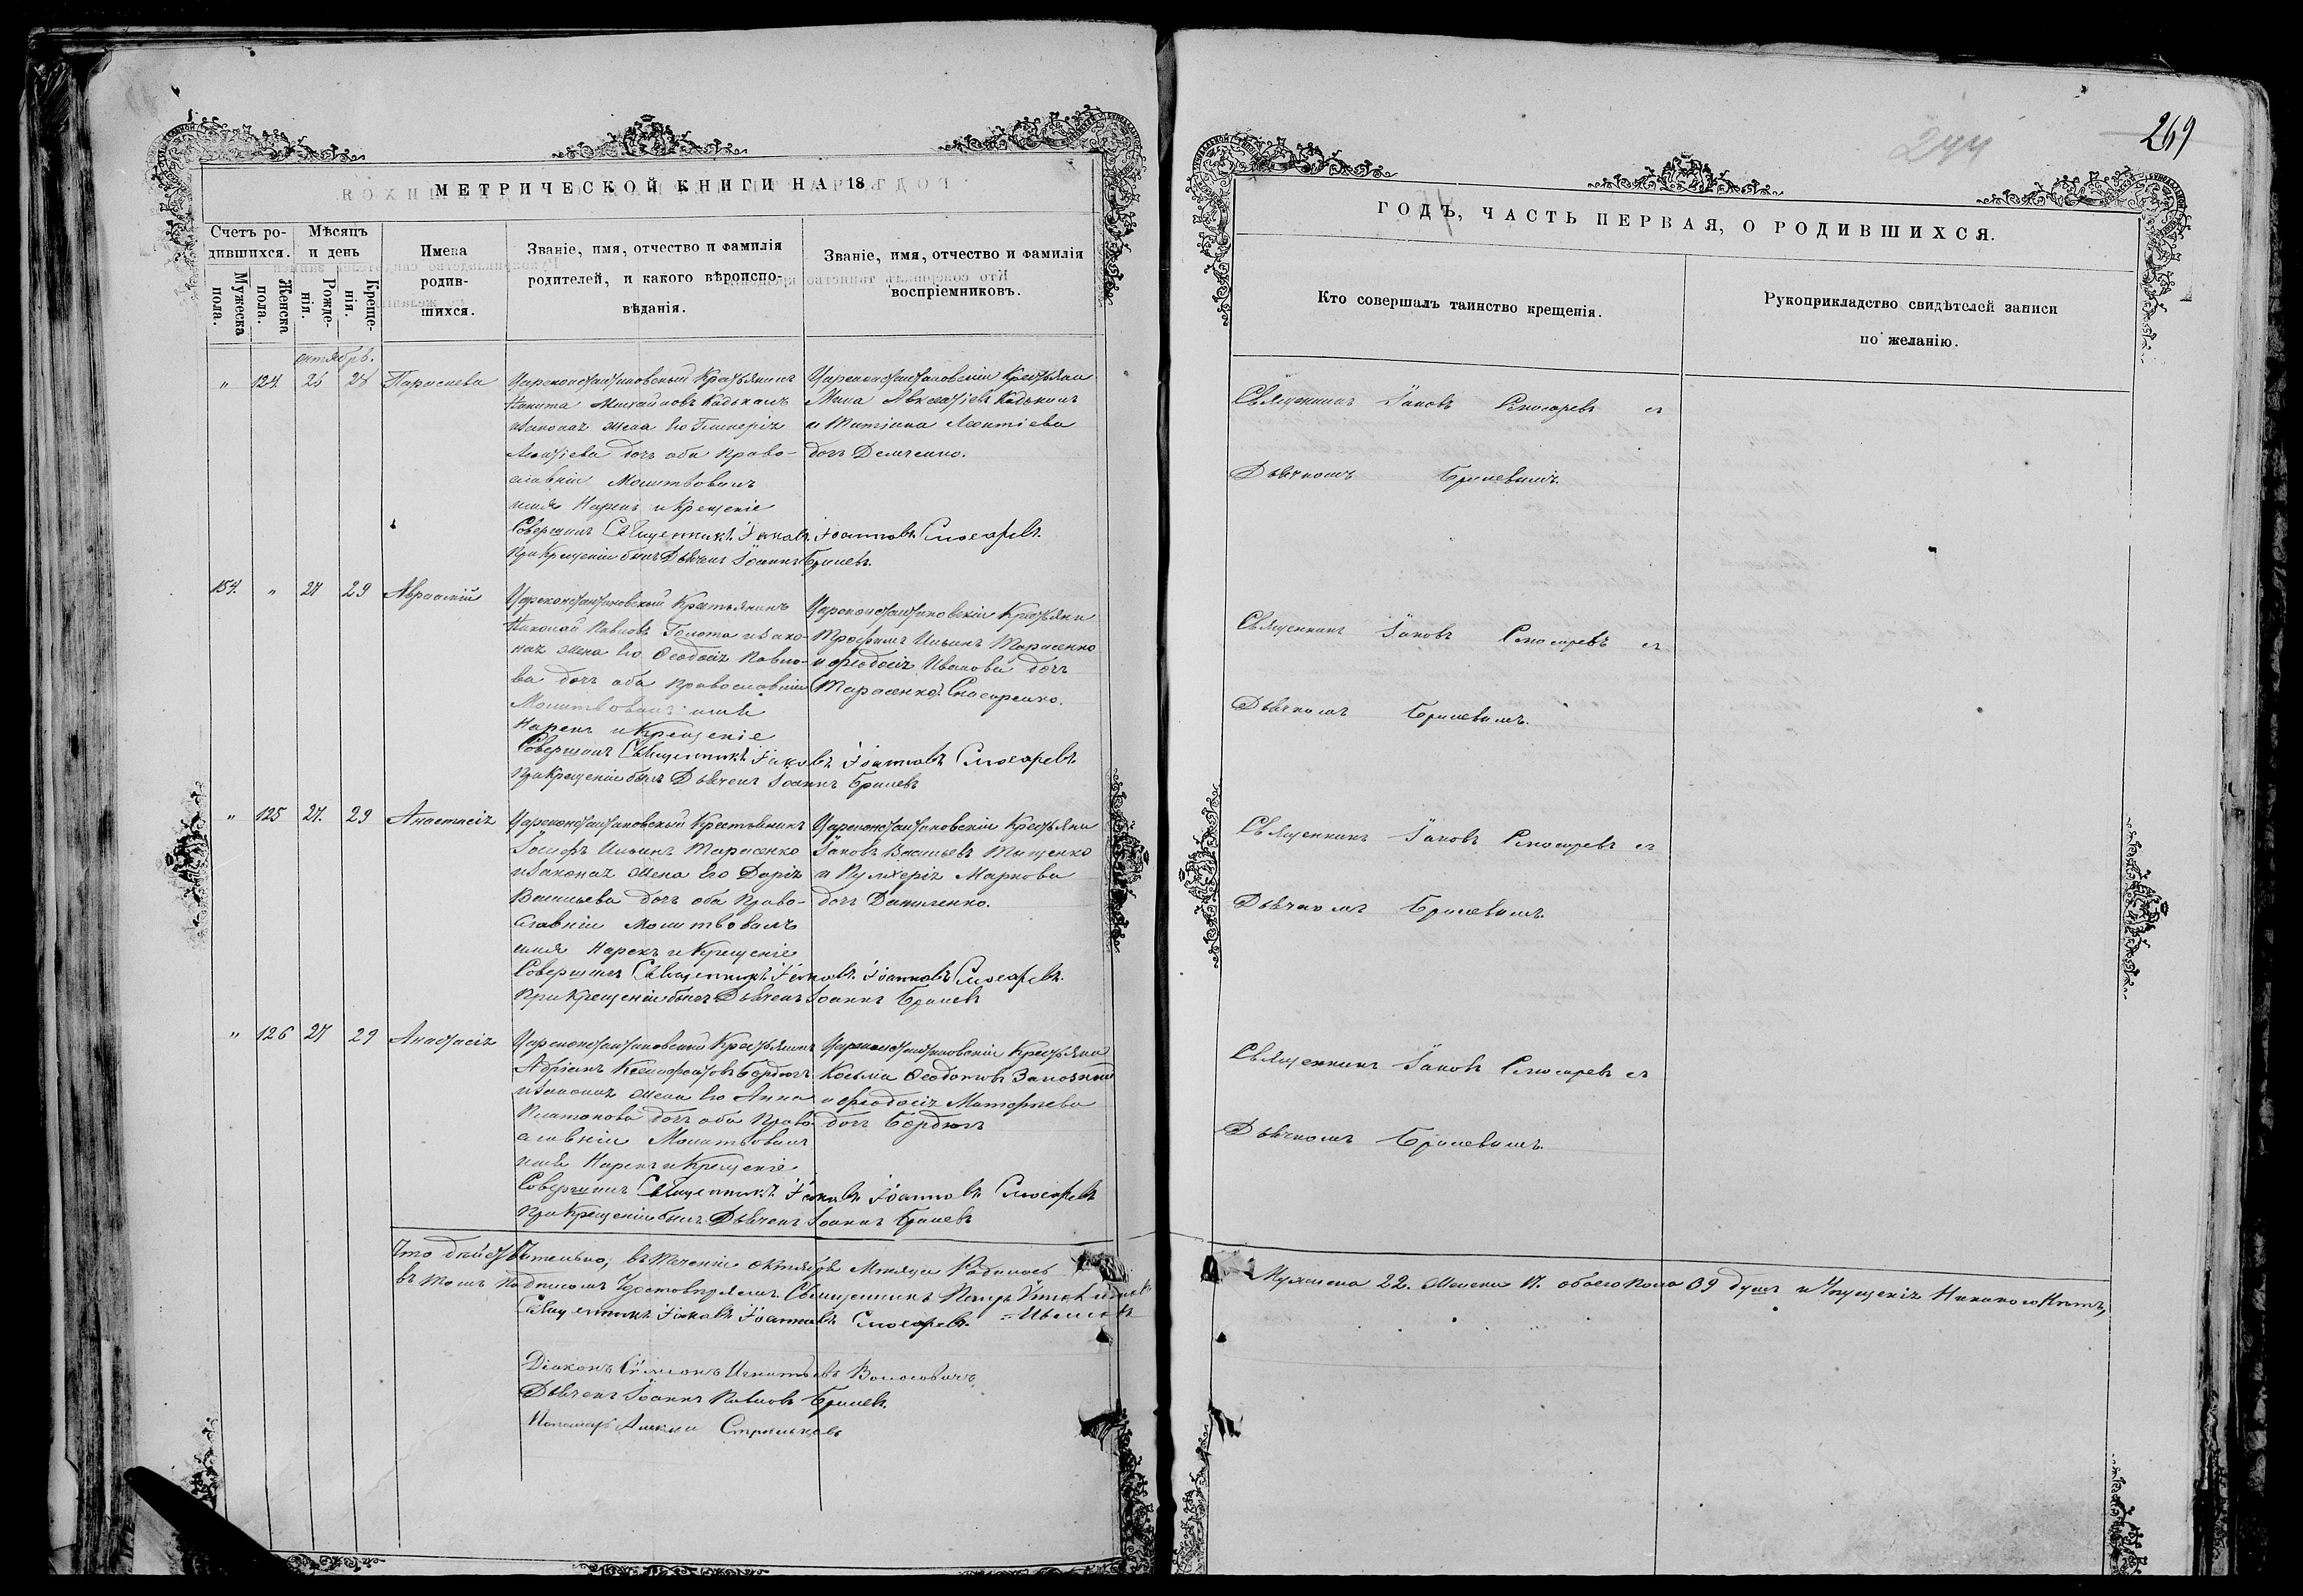 269
244
МЕТРИЧЕСКОЙ КНИГИ НА 18
ГОДЪ, ЧАСТЬ ПЕРВАЯ, О РОДИВШИХСЯ.
Счетъ ро-
дившихся.
Мужеска
пола.
Женска
пола.
Мѣсяцъ
и день
Рожде-
нія.
Креще-
нія.
Имена
родив-
шихся.
Званіе, имя, отчество и фамилія
родителей, и какого вѣроиспо-
вѣданія.
Званіе, имя, отчество и фамилія
воспріемниковъ.
Кто совершалъ таинство крещенія.
Рукоприкладство свидѣтелей записи
по желанію.
октябрь.
" 124 26 28
Цареконстантиновскій Крестьянинъ
Никита Михайловъ
и законая жена его Гликерія
Леонтіева дочь оба право-
славніи Молитвовалъ
имя Нарекъ и Крещеніе
Совершилъ Священникъ Іаковъ Іоанновъ Слюсаревъ.
При Крещеніи былъ Дьячекъ Іоаннъ Брилевъ.
Цареконстантиновскіи Крестьяни
и Татіана Леонтіева
дочь Демченко.
Священникъ Іаковъ Слюсаревъ съ
Дьячкомъ Брилевымъ.
154. " 27 29 Авраамій
Цареконстантиновскій Крестьянинъ
Николай Павловъ Голота и зако-
ная жена его Ѳеодосія Павло-
ва дочь оба православніи
Молитвовалъ имя
Нарекъ и Крещеніе
Совершилъ Священникъ Іаковъ Іоанновъ Слюсаревъ
При Крещеніи былъ Дьячекъ Іоаннъ Брилевъ
Цареконстантиновскіи Крестьяни
Трофимъ Ильинъ Тарасенко
и Ѳеодосія Иванова дочь
(Тарасенко) Слюсаренко.
Священникъ Іаковъ Слюсаревъ съ
Дьячкомъ Брилевымъ.
" 125 27. 29 Анастасія
Цареконстантиновскій Крестьянинъ
Іосифъ Ильинъ Тарасенко
и законая жена его Дарія
Васильева дочь оба право-
славніи Молитвовалъ
имя Нарекъ и Крещеніе
Совершилъ Священникъ Іаковъ Іоанновъ Слюсаревъ.
При Крещеніи былъ Дьячекъ Іоаннъ Брилевъ
Цареконстантиновскіи Крестьяни
Іаковъ Васильевъ Тыщенко
и Пулхерія Маркова
дочь Даниленко.
Священникъ Іаковъ Слюсаревъ съ
Дьячкомъ Брилевымъ.
" 126 27 29 Анастасія
Цареконстантиновскій Крестьянинъ
Адріанъ Ксенофонтовъ Бердюгъ
и законая жена его Анна
Платонова дочь оба право-
славніи Молитвовалъ
имя Нарекъ и Крещеніе
Совершилъ Священникъ Іаковъ Іоанновъ Слюсаревъ
При Крещеніи былъ Дьячекъ Іоаннъ Брилевъ
Цареконстантиновскіи Крестьяни
Косьма Ѳеодотовъ
и Ѳеодосія
дочь Бердюгъ
Священникъ Іаковъ Слюсаревъ съ
Дьячкомъ Брилевымъ.
Что дѣйствительно, въ теченіи октября Мѣсяца Родилось
Мужеска 22. Женска 17. обоего пола 39 душъ и упущенія Никакого Нѣтъ,
въ томъ подписомъ удостовѣряемъ. Священникъ
Священникъ Іаковъ Іоанновъ Слюсаревъ.
Діаконъ Сѵмеонъ Игнатьевъ Волосовичъ
Дьячекъ Іоаннъ Павловъ Брилевъ.
Пономарь